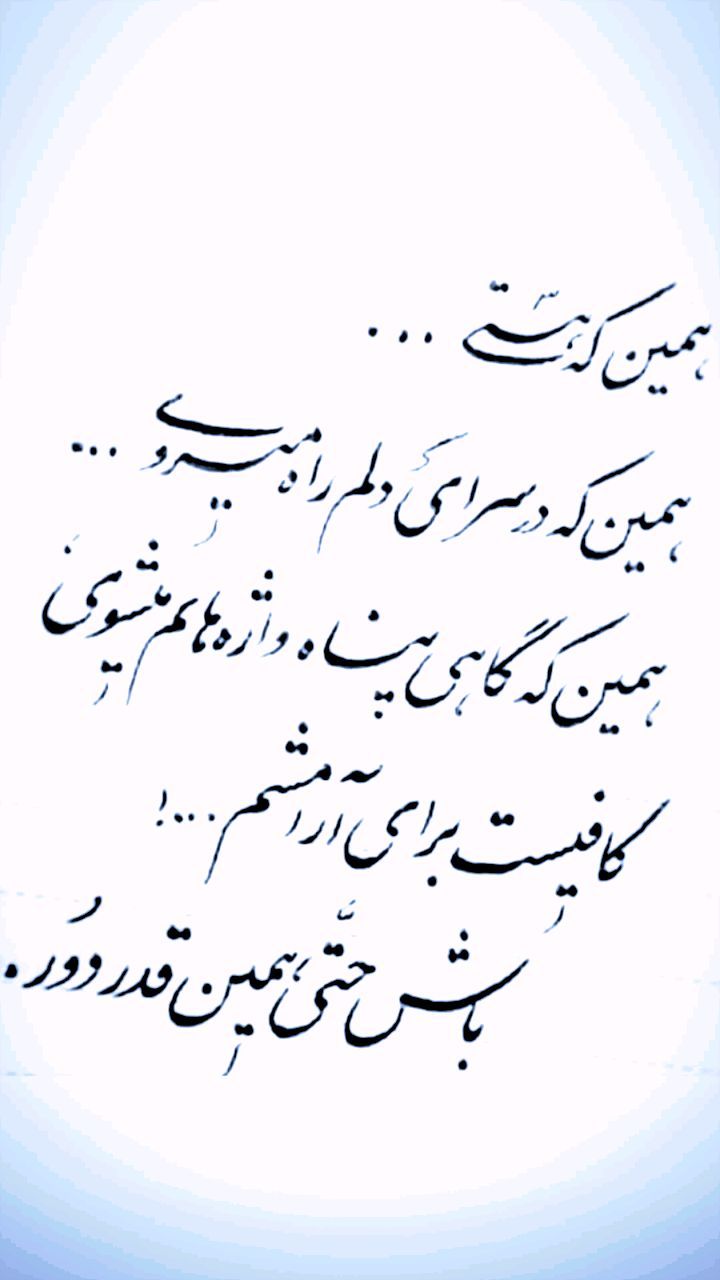 همین که هستی ...
همین که در سرای دلم راه میروی ...
همین که گاهی پناه واژه هایم میشوی
کافیست برای آرامشم ...!
باش حتّی همین قدر دُور.